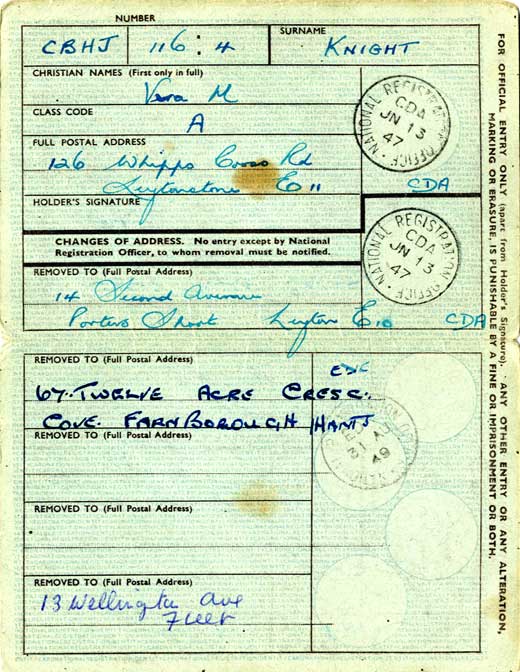 NUMBER
SURNAME
CBHJ 116 : 4 KNIGHT
CHRISTIAN NAMES (First only in full)
Vera M
CLASS CODE
A
FULL POSTAL ADDRESS
126 Whipps Cross Rd
Leytonstone E 11 CDA
HOLDER'S SIGNATURE
NATIONAL REGISTRATION OFFICE
CDA
JN 13
47
CHANGES OF ADDRESS. No entry except by National
Registration Officer, to whom removal must be notified.
NATIONAL REGISTRATION OFFICE
CDA
JN 13
47
REMOVED TO (Full Postal Address)
14 Second Avenue
Porters Leyton E10 CDA
REMOVED TO (Full Postal Address)
67. TWELVE ACRE CRESC.
COVE FARNBOROUGH HANTS
REMOVED TO (Full Postal Address)
49
REMOVED TO (Full Postal Address)
REMOVED TO (Full Postal Address)
13 Wellington Ave
Fleet
FOR OFFICIAL ENTRY ONLY (apart from Holder's Signature) ANY OTHER ENTRY OR ANY ALTERATION,
MARKING OR ERASURE, IS PUNISHABLE BY A FINE OR IMPRISONMENT OR BOTH.